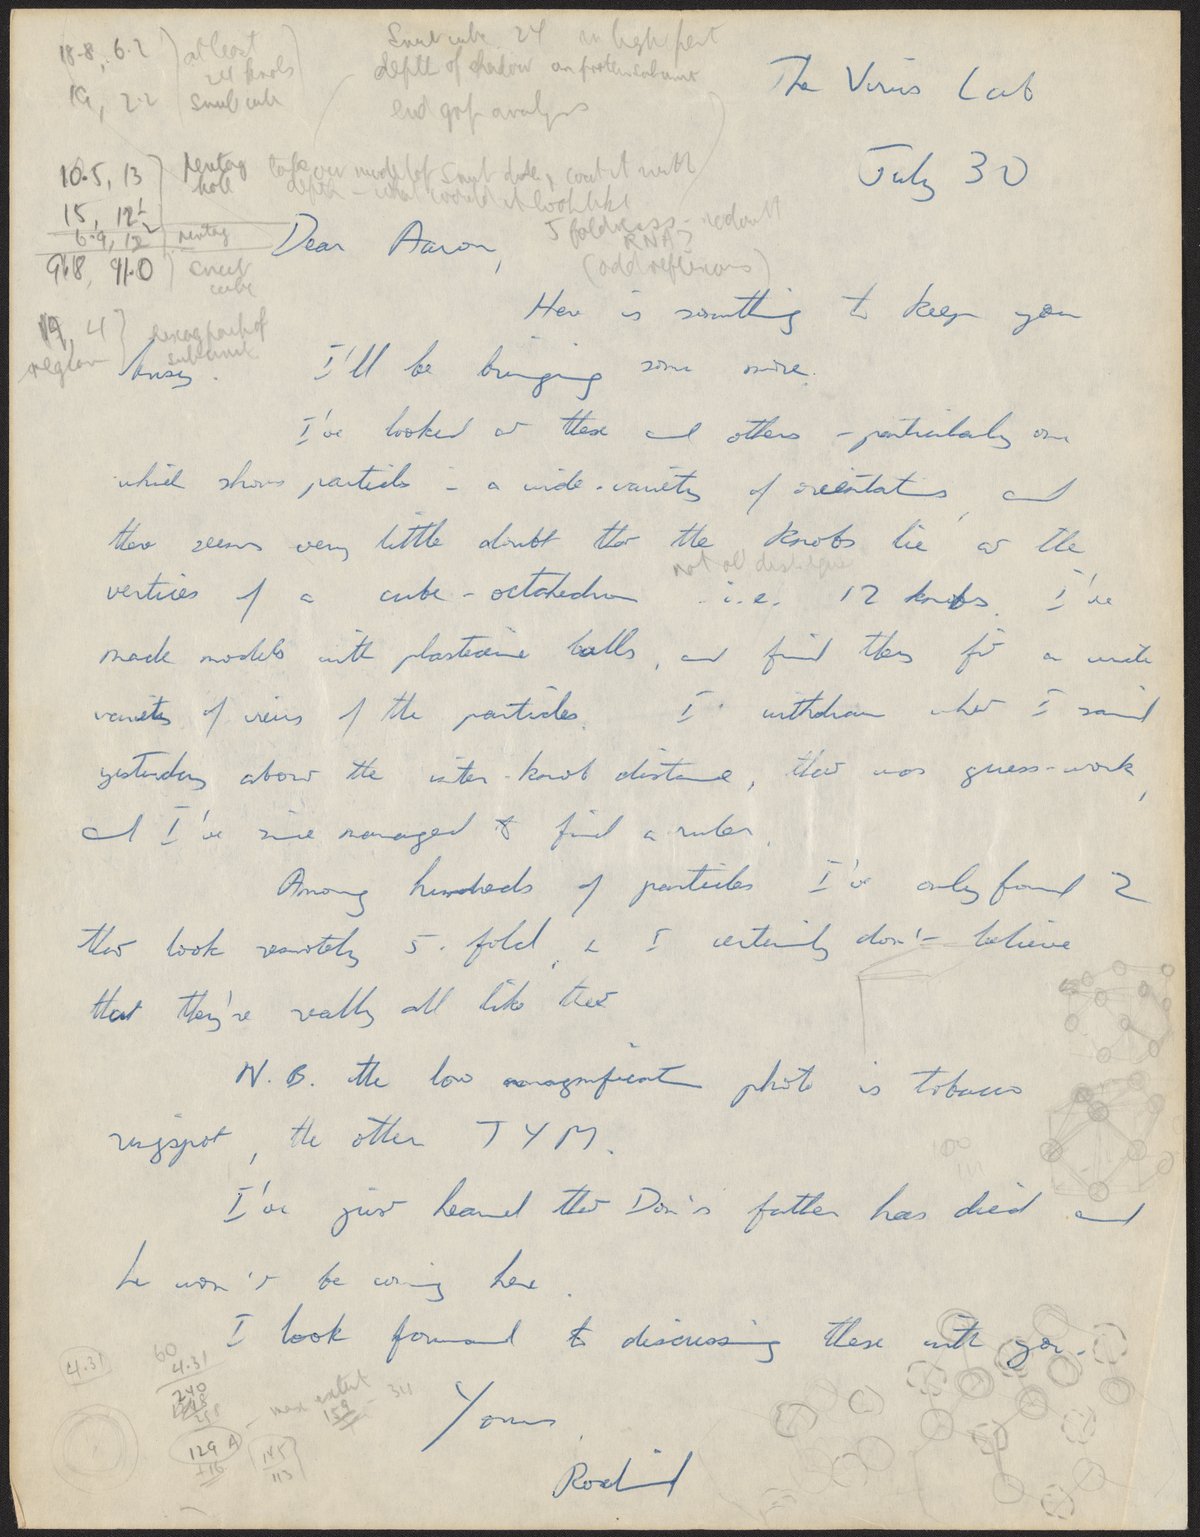 18.8, 6.2
at least
24 knobs
19, 2.2
Snub cube
Snub cube 24 in high part
depth of shadow on protein subunit
end gap analysis
The Virus Lab
July 30
10.5, 13
hole
15, 12½
6.9, 12
9.8, 9.0
snub
cube
take our model of snub cube, coat it with
depth – what would it look like
5 foldness – redout
RNA?
(odd reflexions)
19, 4
region
part of
subunit
Dear Aaron,
Here is something to keep you
busy. I'll be bringing some more.
I've looked at these and others – particularly one
which shows particles in a wide-variety of orientations, and
there seems very little doubt that the knobs lie at the
not all
vertices of a cube-octahedron i.e. 12 knobs. I've
made models with plasticine balls, and find they fit a wide
variety of views of the particles. I withdraw what I said
yesterday about the inter-knob distance, that was guess-work,
and I've since managed to find a ruler.
Among hundreds of particles I've only found 2
that look remotely 5-fold, & I certainly don't believe
that they're really all like that
N.B. the low magnification photo is tobacco
ringspot, the other TYM.
100
111
I've just heard that Don's father has died and
he won't be coming here.
I look forward to discussing these with you.
4.31
60
4.31
240
258
129 A
+16
145
113
max extent
159
34
Yours,
Rosalind